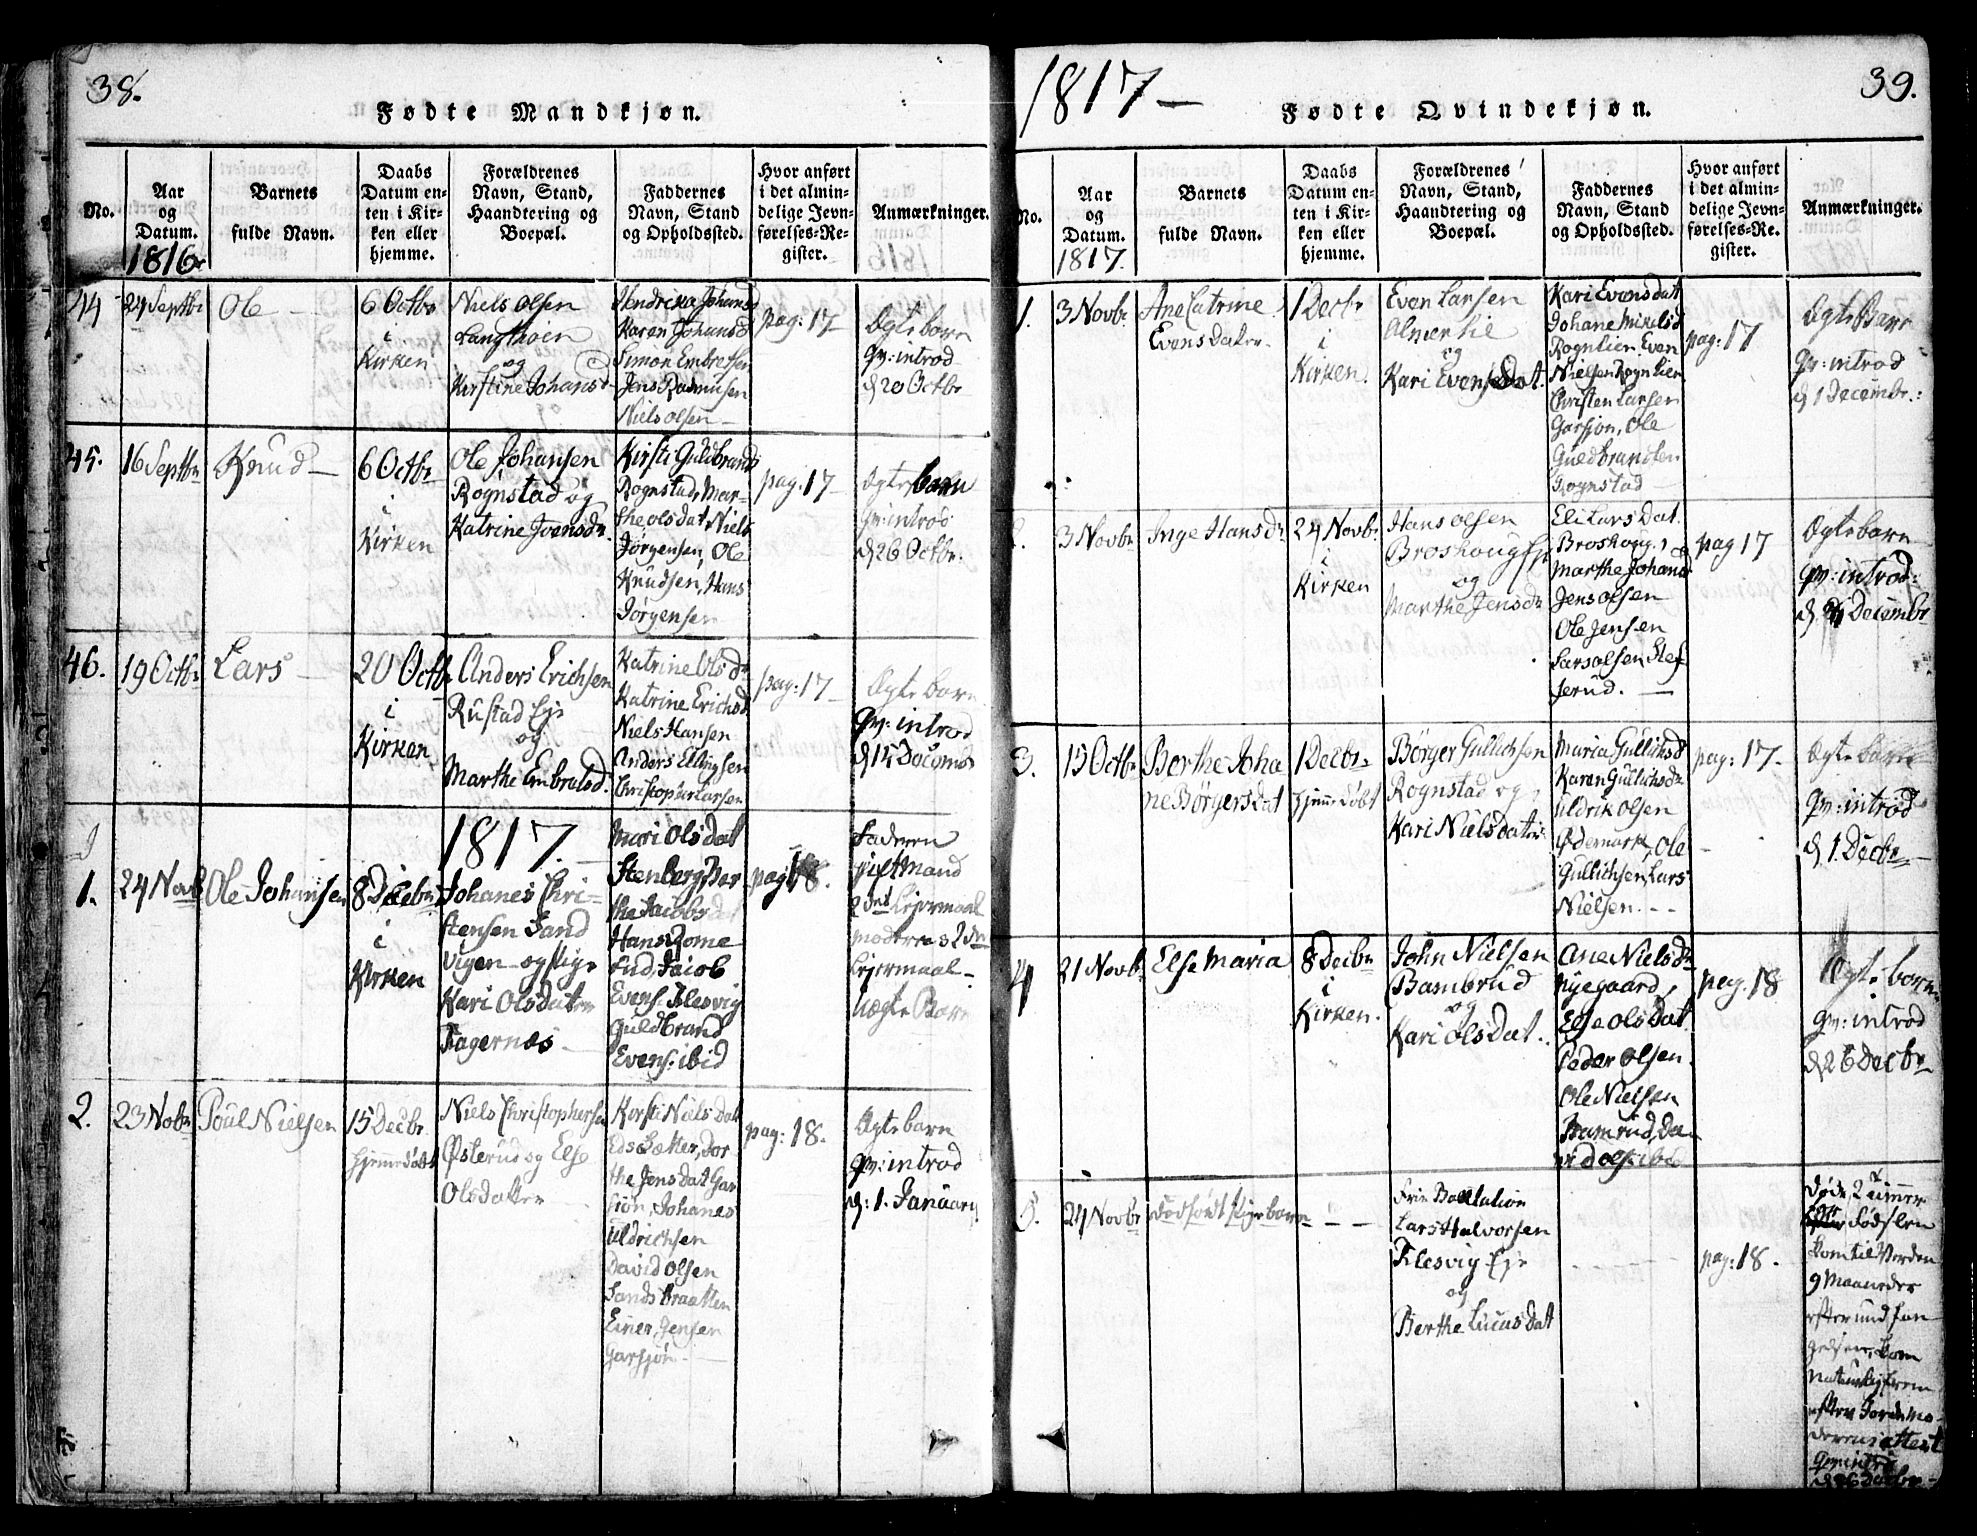 38.
Fødte Mandkjøn.
No.
Aar
og
Datum.
1816
Barnets
fulde Navn.
Daabs
Datum en-
ten i Kir-
ken eller
hjemme.
Forældrenes
Navn, Stand,
Haandtering og
Boepæl.
Faddernes
Navn, Stand
og Opholdssted.
Hvor anført
i det almin-
delige Jevn-
førelses-Re-
gister.
Anmærkninger.
44
24 Septbr
Ole
6 Octbr
i
Kirken
Niels Olsen
Langthoen
og
Kirstine Johansd
Hendrika Johansd
Karen Johansd
Simon Embretsen
Jens Rasmusen
Niels Olsen
pag: 17
Ægte barn
Qv: introd
d 20 Octbr
45.
16 Septbr
Knud
6 Octbr
i
Kirken
Ole Johansen
Rognstad og
Katrine Joensdr.
Kirsti Guldbrands
Rognstad, Mar-
the Olsdat, Niels
Jørgensen, Ole
Knudsen, Hans
Jørgensen
pag: 17
Ægte barn
Qv: introd
d 26 Octbr.
46.
19 Octbr
Lars
20 Octbr
i
Kirken
Anders Erichsen
Rustad Eje
og
Marthe Embretsd.
Katrine Olsdr
Katrine Erichsd
Niels Hansen
Anders Ellingsen
Christopher Larsen
pag: 17
Ægte barn
Qv: introd
d 15 Decembr
1817.
1.
24 Novb
Ole Johansen
8 Decbr
i
Kirken
Johanes Chri-
stensen Sand
vigen og Pige
Kari Olsdatter
Fagernes
Mari Olsdat
Stenberg, Ber
the Jacobsdat
Hans Rome
rud, Jacob
Evens: Klesvig
Guldbrand
Evens: ibid
pag 18.
Faderen
gift Mand
2det Lejermaal
Moderens 2det
Lejermaal -
Uægte Barn
2.
23 Nobr
Poul Nielsen
15 Decbr
hjemmedøbt
Niels Christophersen
Østerud og Else
Olsdatter
Kirsti Niels Dat
Edsætter, Dor
the Jensdat Gar
siøn, Johanes
Uldrichsen
David Olsen
Sandsbraatten
Einer Jensen
Garsjøn
pag: 18.
Ægte barn
Qv: introd
d: 1. Januari
1817
39.
Fødte Qvindekjøn.
No.
Aar
og
Datum.
1817.
Barnets
fulde Navn.
Daabs
Datum en-
ten i Kir-
ken eller
hjemme.
Forældrenes
Navn, Stand,
Haandtering og
Boepæl.
Faddernes
Navn, Stand
og Opholdssted.
Hvor anført
i det almin-
delige Jevn-
førelses-Re-
gister.
Anmærkninger.
1.
3 Novbr
Ane Catrine
Evens Datter.
1 Decbr
i
Kirken.
Even Larsen
Almerhie
og
Kari Evensdat.
Kari Evensdat
Johane Mikelsd
Rognlien, Even
Nielsen Rognlien
Christen Larsen
Garsjøn, Ole
Guldbrandsen
Rognstad
pag: 17
Ægte Barn
Qv: introd
d 1 Decembr.
2.
3 Novbr
Inge Hansdr
24 Novbr
i
Kirken
Hans Olsen
Broshoug Eje
og
Marthe Jensdr
Eli Larsdat.
Broshoug,
Marthe Johansd
Jens Olsen
Ole Jensen
Lars Olsen Stef
ferud.
pag 17
Ægte barn
Qv: introd:
d Decembr
3.
15 Octbr
Berthe Joha
ne Børgersdat
1 Decbr
hjemmedøbt
Børger Gullichsen
Rognstad og
Kari Nielsdatter
Maria Gullichsd
Karen Gullichsdr
Uldrik Olsen
Ødemark, Ole
Gullichsen, Lars
Nielsen.
pag: 17.
Ægte barn
Qv: introd
d 1. Decbr
4
21 Novb
Else Maria
8 Decbr
i
Kirken.
John Nielsen
Bamrud
og
Kari Olsdat.
Ane Nielsdr
Nyegaard,
Else Olsdat.
Peder Olsen.
Ole Nielsen
Bamrud, Da
vid Ols: ibid
pag. 18
Ægte barn
Qv: introd
d 26 Decbr
5.
24 Novbr
dødfødt Pigebarn
Lars Halvorsen
Klesvig Eje
og
Berthe Lucasdat
pag: 18.
døde 2 timer
efter Fødslen
kom til Verden
9 Maaneder
efter undfan
gelsen, kom
naturlig frem
efter Jordemo-
derens attest
Qv: introd
d 26 Decbr